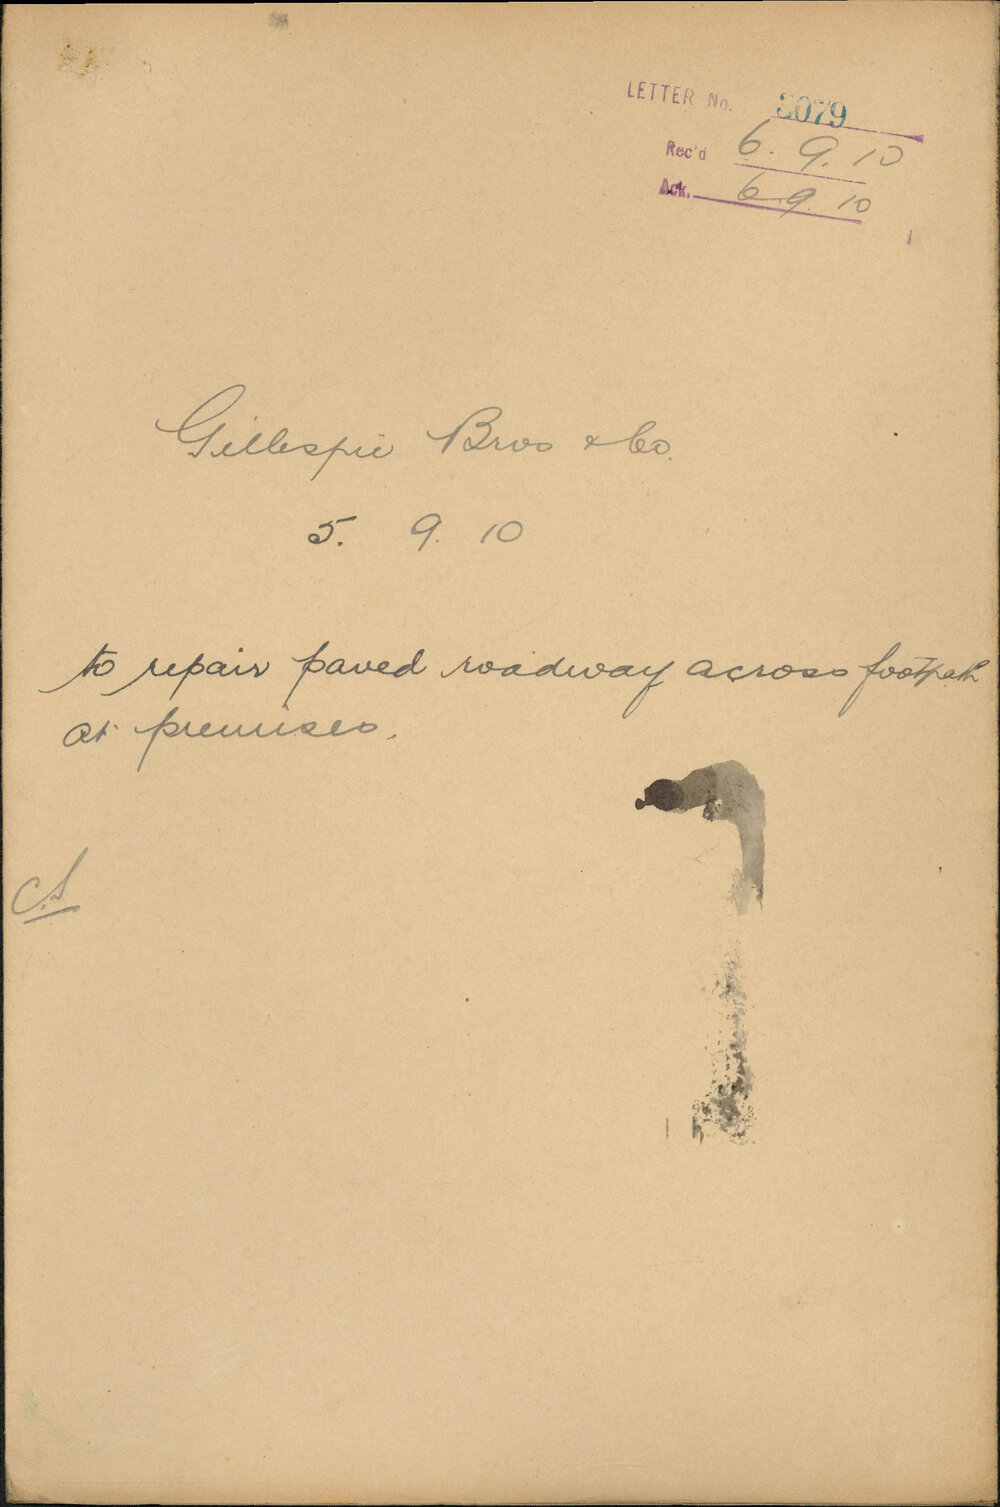 LETTER No. 3079
Rec'd 6. 9. 10
Ack. 6 9. 10
Gillespie Bros & Co.
5. 9. 10
to repair paved roadway across footpath
at premises.
CS